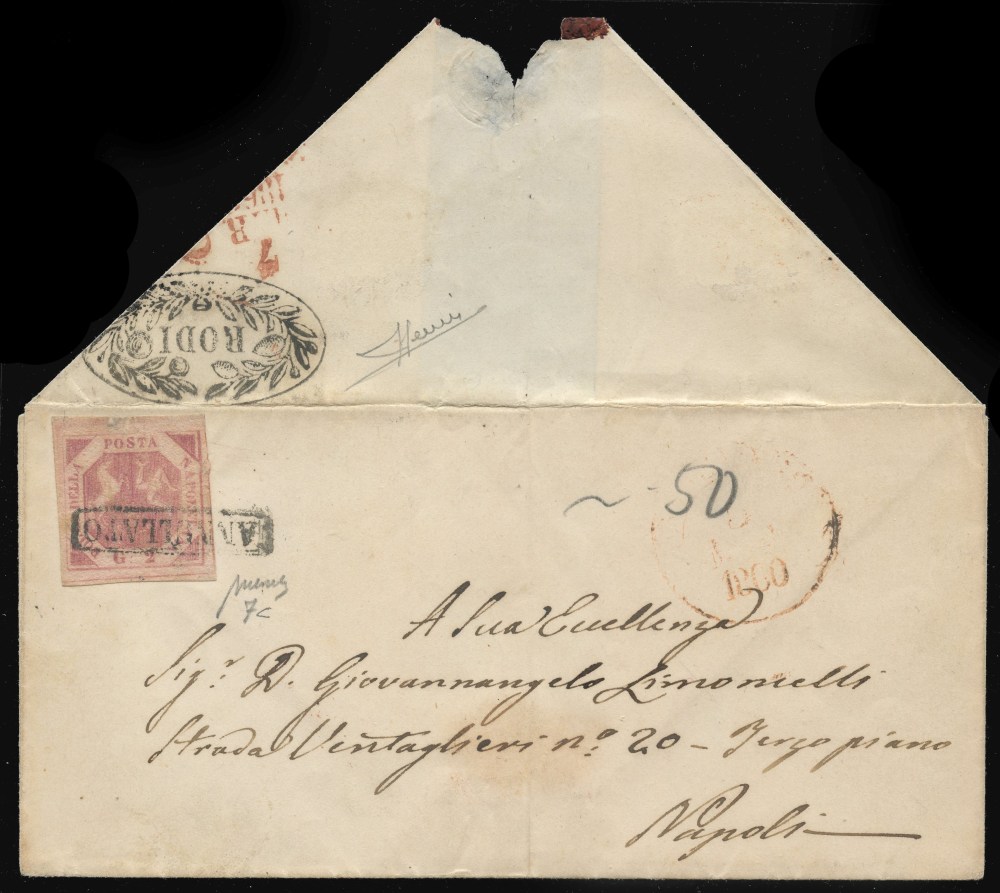 RODI
POSTA
DELLA
NAPOLI
G. 2
ANNULLATO
50
1860
7c
A Sua Eccellenza
Sigr. D. Giovannangelo Limoncelli
Strada Ventaglieri no. 20 - Terzo piano
Napoli